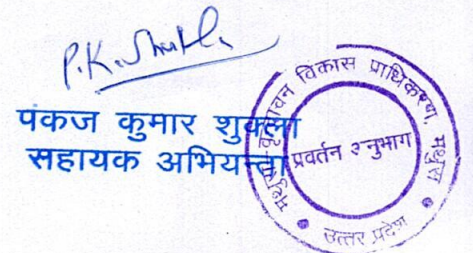 P.K. Shukla
पंकज कुमार शुक्ला
सहायक अभियन्ता
मथुरा-वृन्दावन विकास प्राधिकरण, मथुरा
प्रवर्तन अनुभाग
उत्तर प्रदेश